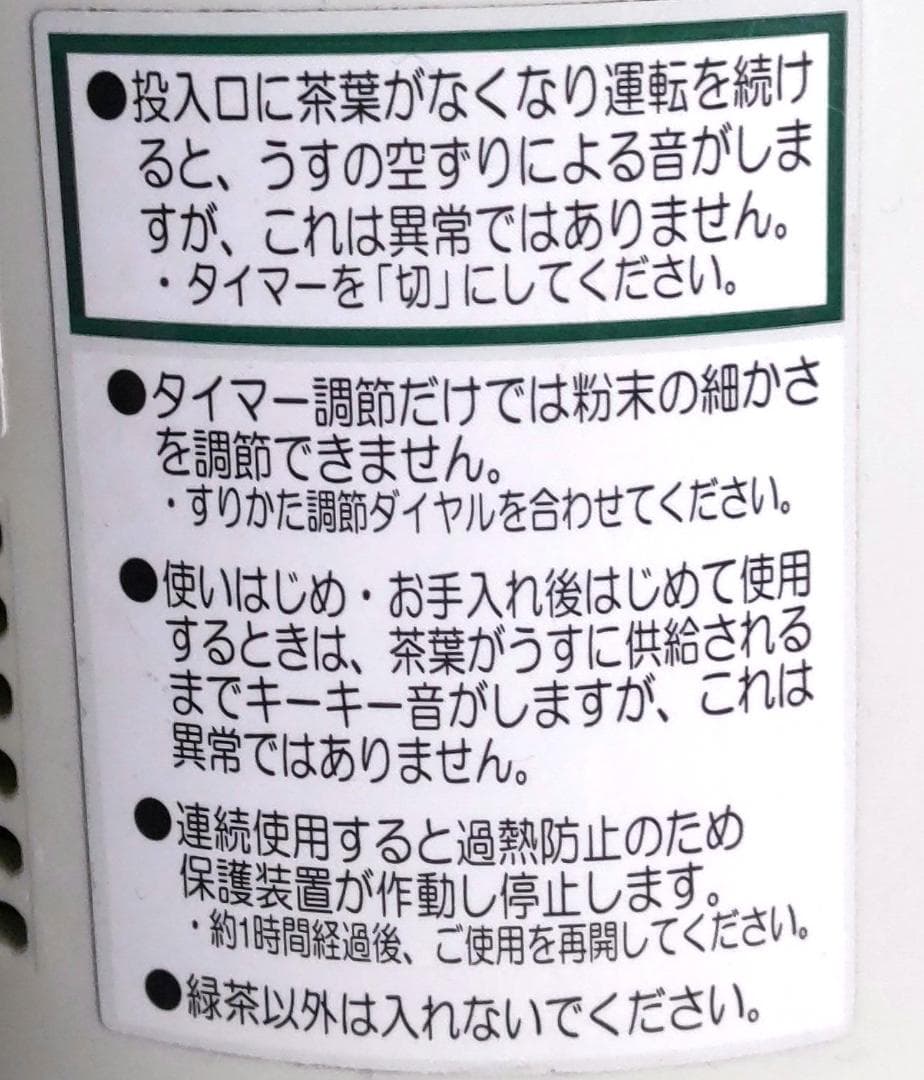 ●投入口に茶葉がなくなり運転を続け
ると、うすの空ずりによる音がしま
すが、これは異常ではありません。
・タイマーを「切」にしてください。
●タイマー調節だけでは粉末の細かさ
を調節できません。
・すりかた調節ダイヤルを合わせてください。
●使いはじめ・お手入れ後はじめて使用
するときは、茶葉がうすに供給される
までキーキー音がしますが、これは
異常ではありません。
●連続使用すると過熱防止のため
保護装置が作動し停止します。
・約1時間経過後、ご使用を再開してください。
●緑茶以外は入れないでください。